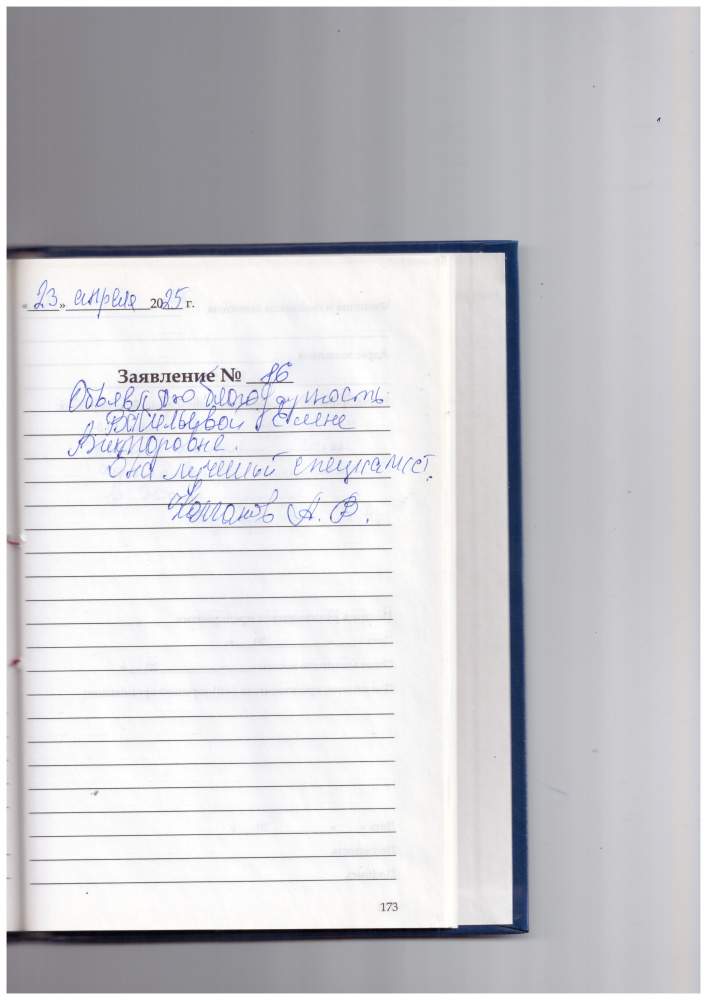 « 23 » апреля 2025 г.
Заявление № 86
Объявляю благодарность
Васильевой Елене
Викторовне.
Она лучший специалист.
А. В.
173